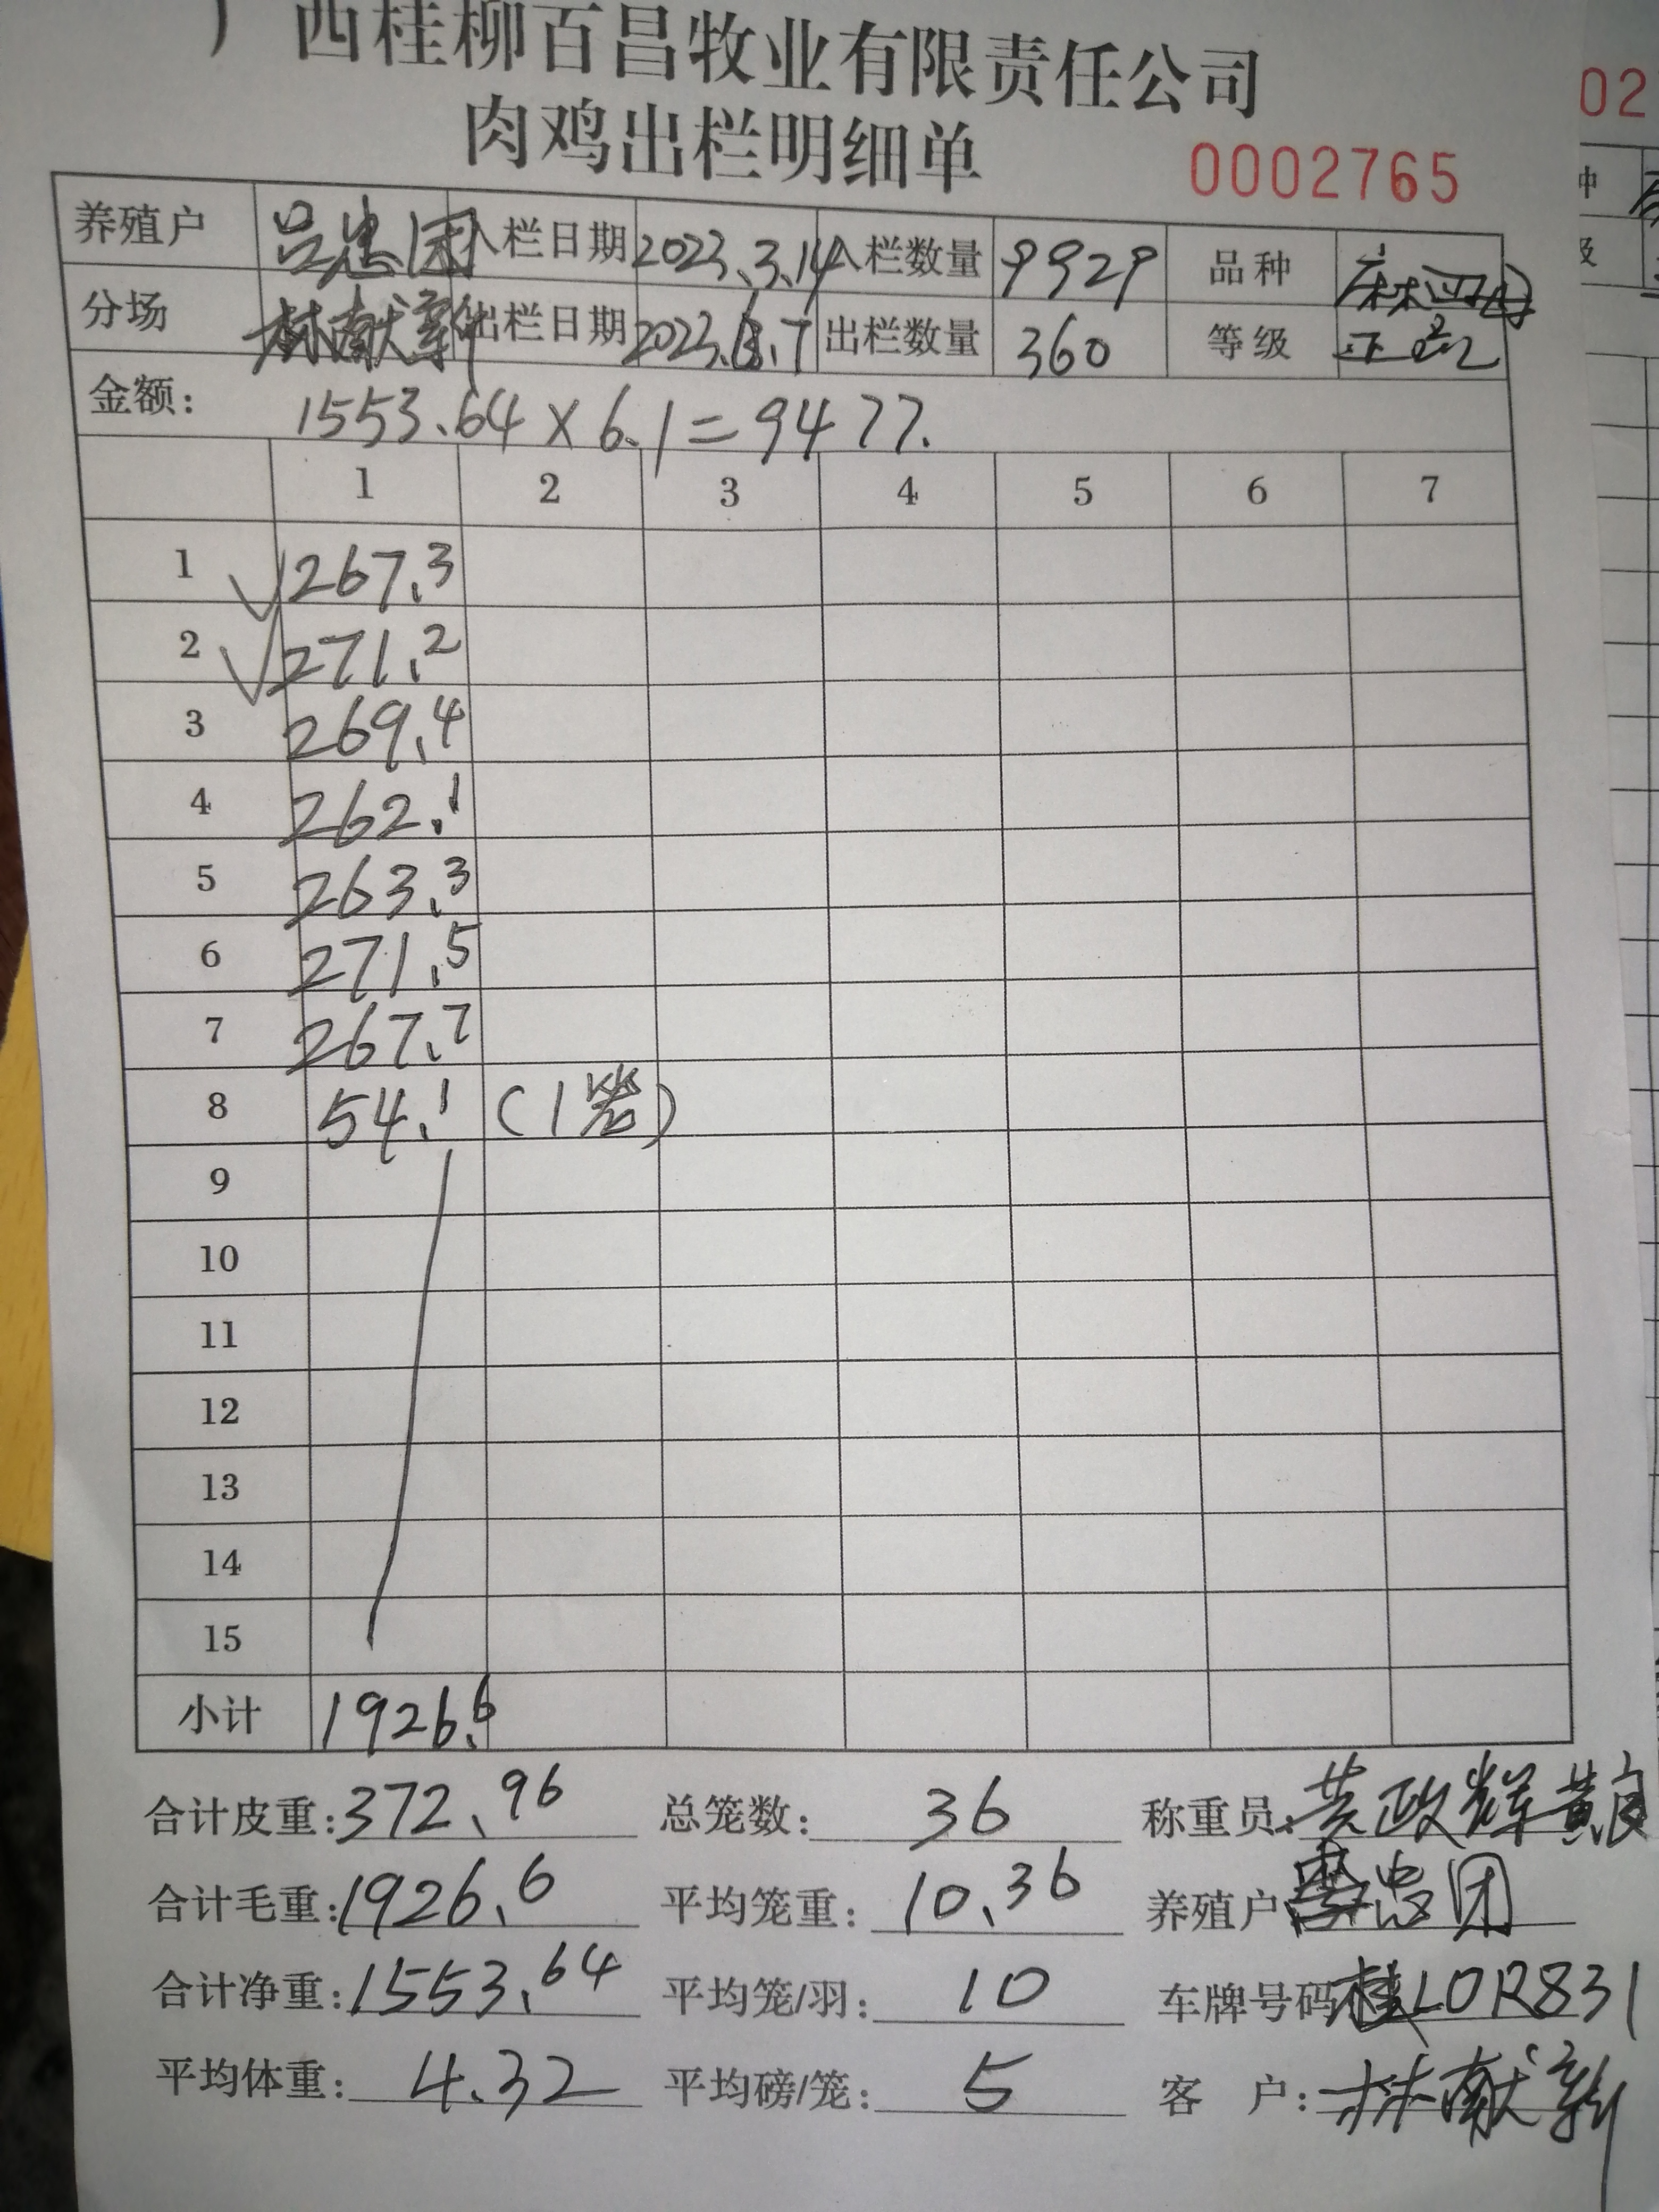 广西桂柳百昌牧业有限责任公司
肉鸡出栏明细单
0002765
02
养殖户 吕忠团 入栏日期 2023.3.14 入栏数量 9929 品种
分场 林献新 出栏日期 2023. .7 出栏数量 360 等级 正
金额: 1553.64×6.1=9477.
1 2 3 4 5 6 7
1 √267.3
2 √271.2
3 269.4
4 262.1
5 263.3
6 271.5
7 267.7
8 54.1 (1笼)
9
10
11
12
13
14
15
小计 1926.6
合计皮重:372.96 总笼数: 36 称重员: 政辉
合计毛重:1926.6 平均笼重: 10.36 养殖户 忠团
合计净重:1553.64 平均笼/羽: 10 车牌号码 桂L0R831
平均体重: 4.32 平均磅/笼: 5 客 户: 林献新